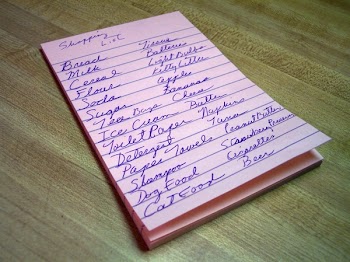 Shopping
List
Bread Tissue
Milk Batteries
Cereal Light Bulbs
Flour Kitty Litter
Soda Apples
Sugar Bananas
Tea Bags
Ice Cream Butter
Toilet Paper Napkins
Detergent Tuna
Paper Towels Peanut Butter
Shampoo Strawberry
Dog Food Cigarettes
Cat Food Beer